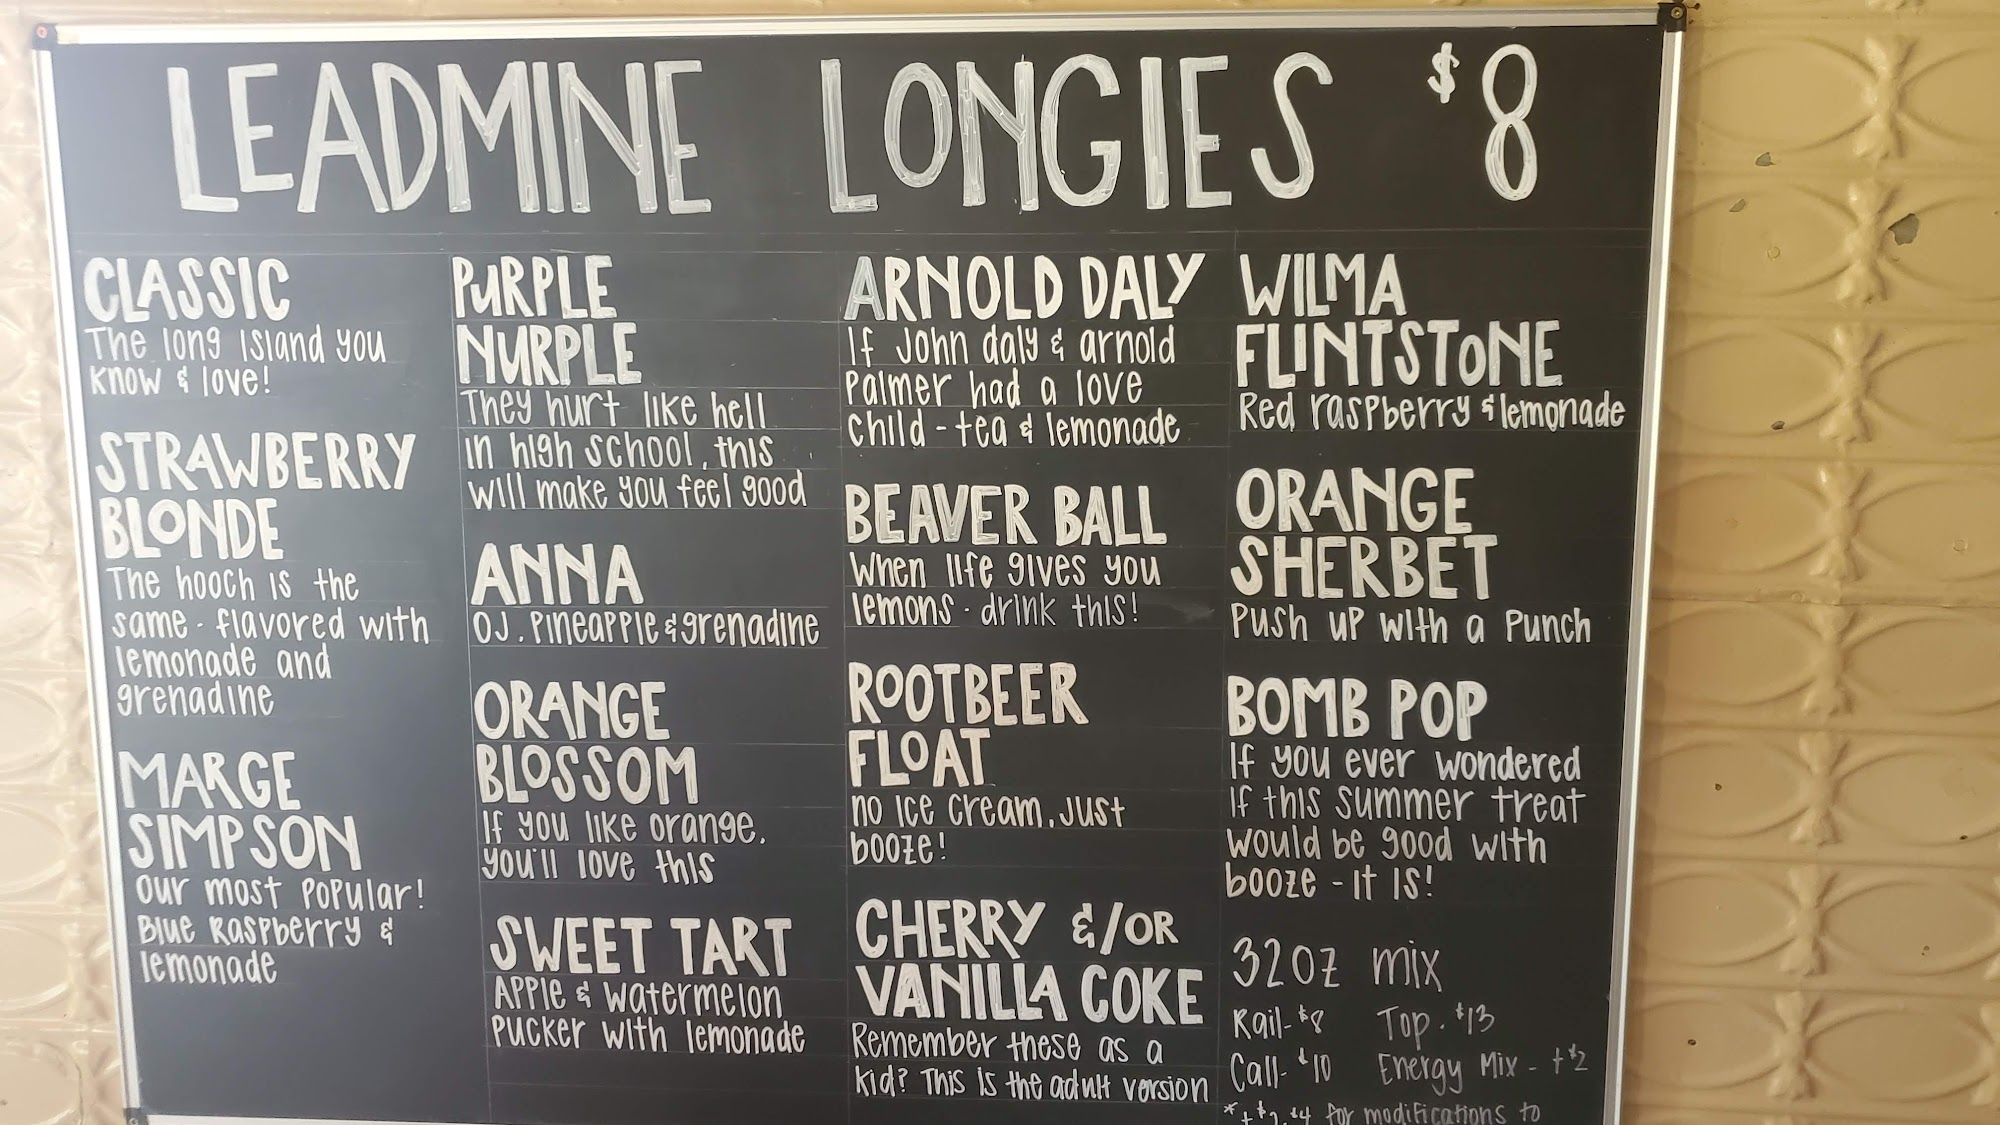 LEADMINE LONGIES $8
CLASSIC
The long island you
know & love!
STRAWBERRY
BLONDE
The hooch is the
same - flavored with
lemonade and
grenadine
MARGE
SIMPSON
our most popular!
Blue Raspberry &
lemonade
PURPLE
NURPLE
They hurt like hell
in high school, this
will make you feel good
ANNA
OJ, Pineapple & grenadine
ORANGE
BLOSSOM
If you like orange,
you'll love this
SWEET TART
Apple & watermelon
pucker with lemonade
ARNOLD DALY
If John daly & arnold
palmer had a love
child - tea & lemonade
BEAVER BALL
When life gives you
lemons - drink this!
ROOTBEER
FLOAT
no ice cream, just
booze!
CHERRY &/OR
VANILLA COKE
Remember these as a
kid? This is the adult version
WILMA
FLINTSTONE
Red raspberry & lemonade
ORANGE
SHERBET
Push up with a punch
BOMB POP
If you ever wondered
if this summer treat
would be good with
booze - it is!
32oz mix
Rail - $8 Top - $13
Call - $10 Energy Mix - + $2
*+$2-$4 for modifications to